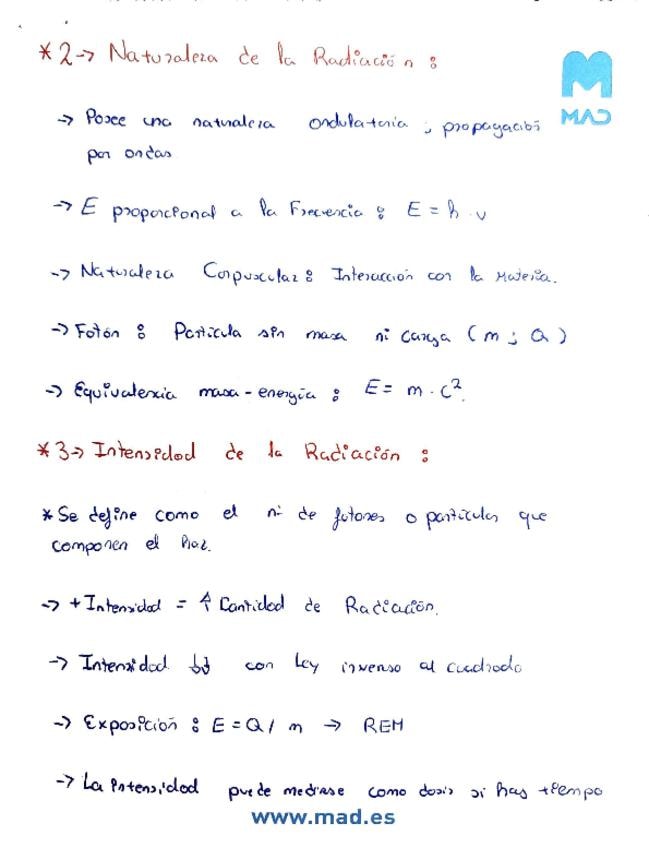 * 2 -> Naturaleza de la Radiación :
MAD
-> Posee una naturaleza ondulatoria ; propagación
por ondas
-> E proporcional a la Frecuencia : E = h . v
-> Naturaleza Corpuscular : Interacción con la Materia.
-> Fotón : Partícula sin masa ni carga ( m ; Q )
-> Equivalencia masa - energía : E = m . c².
* 3 -> Intensidad de la Radiación :
* Se define como el nº de fotones o partículas que
componen el haz.
-> + Intensidad = ↑ Cantidad de Radiación.
-> Intensidad ↓↓ con Ley inverso al cuadrado
-> Exposición : E = Q / m -> REM
-> La intensidad puede medirse como dosis si has tiempo
www.mad.es